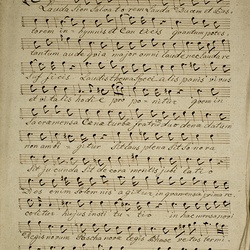 Lauda Sion Salvatorem Lauda Ducem et Pas-
torem in hymnis et Canticis quantum potes
tantum aude quia major omni laude nec laudare
Sufficis Laudis thema speci alis panis vivus
et vitalis hodie pro po nitur quem in
Sacrae mensa Cenae turbae fratrum duodenae datum
non ambi gitur Sit laus plena Sit Sonora
Sit jucunda Sit decora mentis jubila tio
Dies enim Solemnis agitur in qua mensae prima re
colitur hujus insti tu ti o in hac mensa novi
Regis novum Pascha novae legis Phase vetus termi